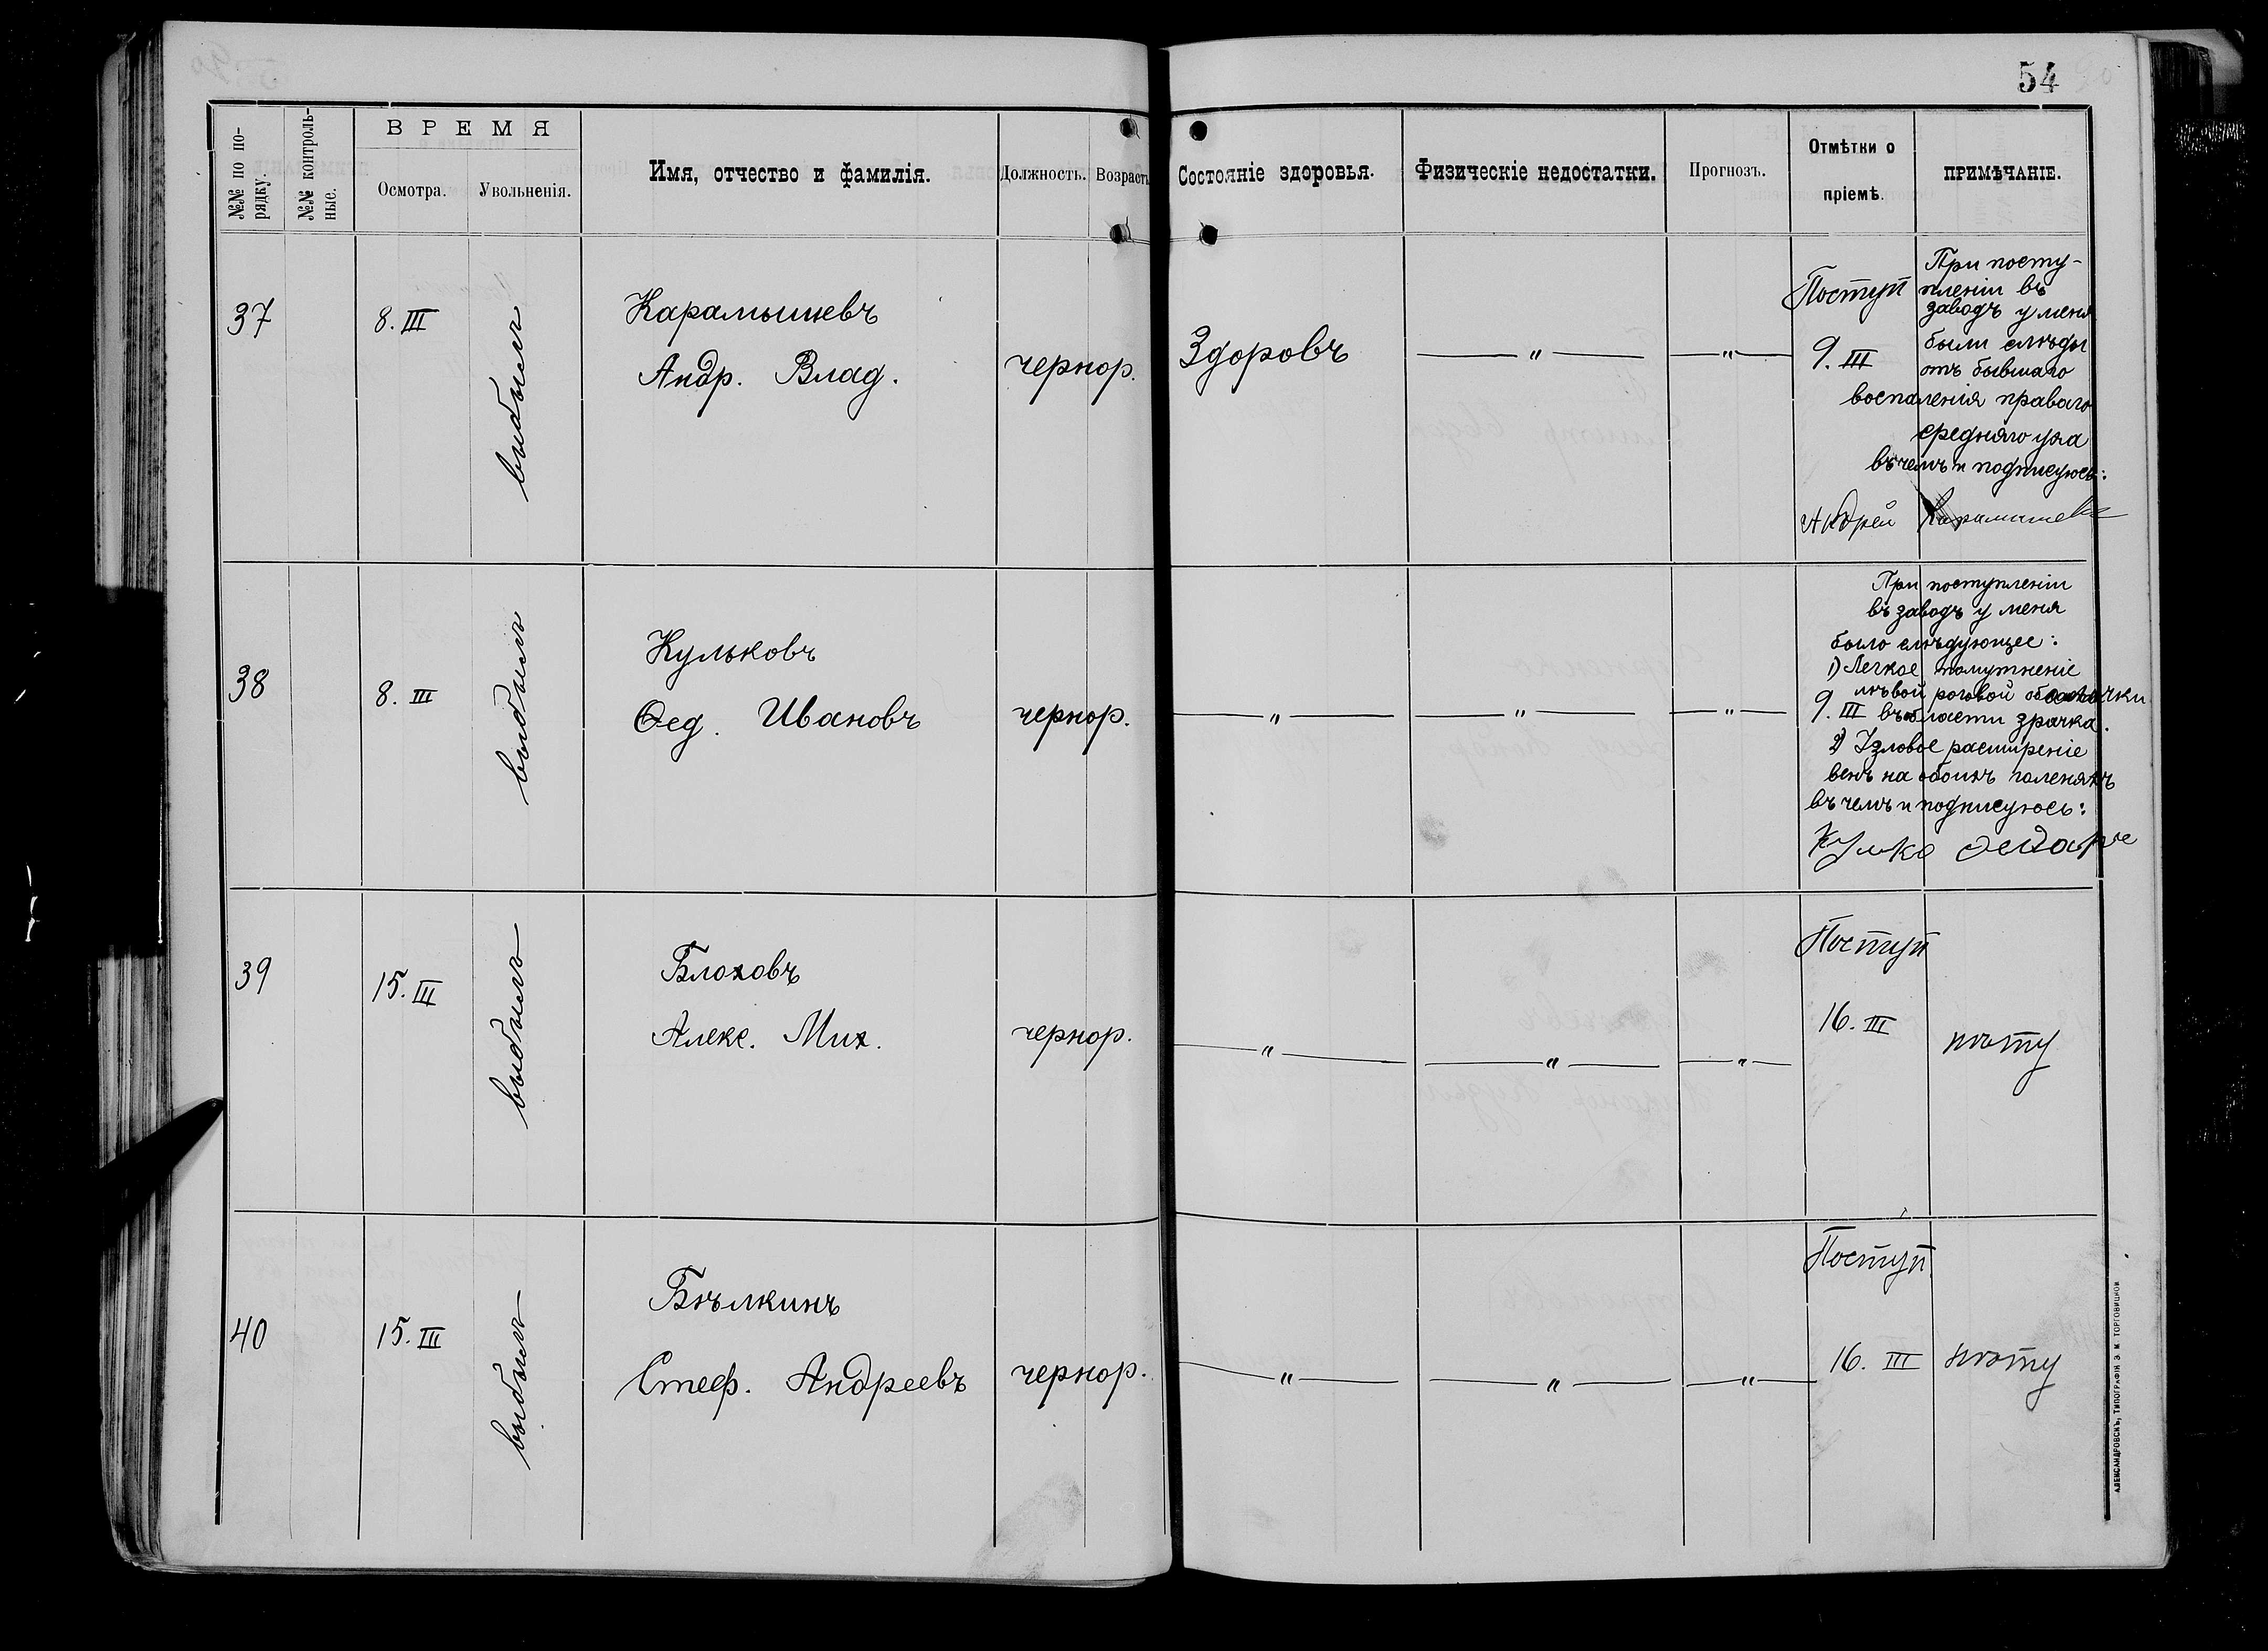 54
№№ по по-
рядку.
№№ контроль-
ные.
ВРЕМЯ
Осмотра.
Увольненія.
Имя, отчество и фамилія.
Должность.
Возрастъ
Состояніе здоровья.
Физическіе недостатки.
Прогнозъ.
Отмѣтки о
пріемѣ.
ПРИМѢЧАНІЕ.
37
8. III
выбылъ
Карамышевъ
Андр. Влад.
чернор.
Здоровъ
— " —
— " —
Поступ
9. III
При посту-
пленіи въ
заводъ у меня
были слѣды
отъ бывшаго
воспаленія праваго
средняго уха
въ чемъ и подписуюсь:
Андрей Карамышевъ
38
8. III
выбылъ
Кульковъ
Ѳед. Ивановъ
чернор.
— " —
— " —
— " —
9. III
При поступленіи
въ заводъ у меня
было слѣдующее:
1) Легкое помутненіе
лѣвой роговой оболочки
въ области зрачка.
2) Узловое расширеніе
венъ на обоихъ голеняхъ
въ чемъ и подписуюсь:
39
15. III
выбылъ
Блоховъ
Алекс. Мих.
чернор.
— " —
— " —
— " —
Поступ
16. III
нѣту
40
15. III
выбылъ
Бѣлкинъ
Стеф. Андреевъ
чернор.
— " —
— " —
— " —
Поступ.
16. III
нѣту
АЛЕКСАНДРОВСКЪ, ТИПОГРАФІЯ Э. И. ТОРГОВИЦКОЙ